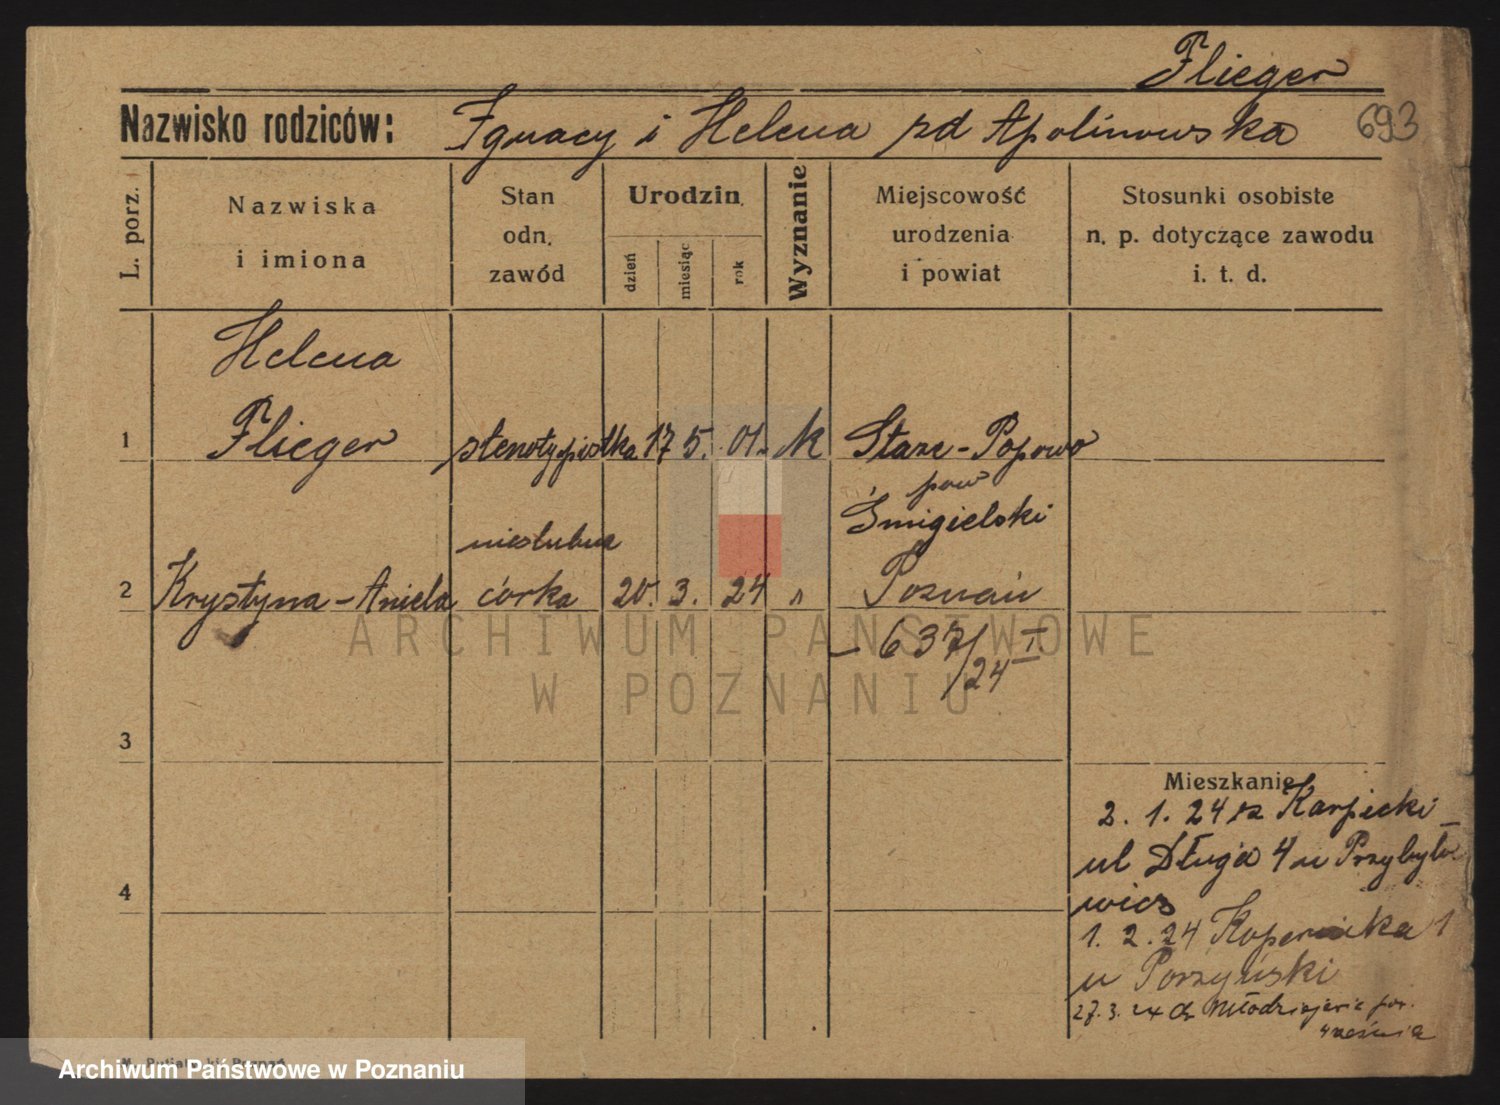 Flieger
Nazwisko rodziców: Ignacy i Helena zd Apolinowska 693
L. porz.
Nazwiska
i imiona
Stan
odn.
zawód
Urodzin
dzień
miesiąc
rok
Wyznanie
Miejscowość
urodzenia
i powiat
Stosunki osobiste
n. p. dotyczące zawodu
i. t. d.
Helena
1 Flieger stenotypistka 17 5. 01. k Stare-Popowo
pow
Śmigielski
nieślubna
2 Krystyna-Aniela córka 20. 3. 24 " Poznań
- 637/24 I.
ARCHIWUM PAŃSTWOWE
W POZNANIU
3
Mieszkanie
2. 1. 24 Karpicki
ul Długa 4 u Przybyło
wicz
4
1. 2. 24 Kopernika 1
u Porzyński
27. 3. 24 pow.
Września
Poznań
Archiwum Państwowe w Poznaniu